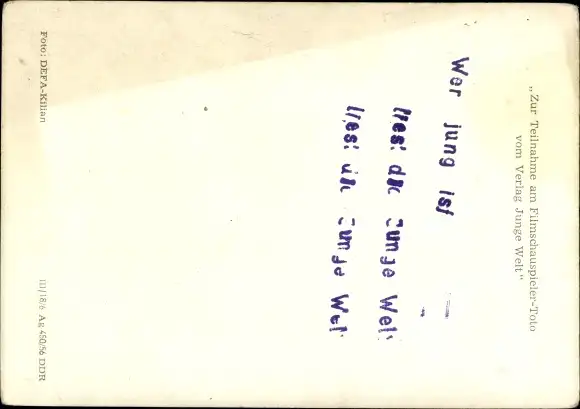 „Zur Teilnahme am Filmschauspieler-Toto
vom Verlag Junge Welt"
Wer jung ist
liest die Junge Welt
liest die Junge Welt
Foto: DEFA-Kilian
III/18/6 Ag 450/56 DDR